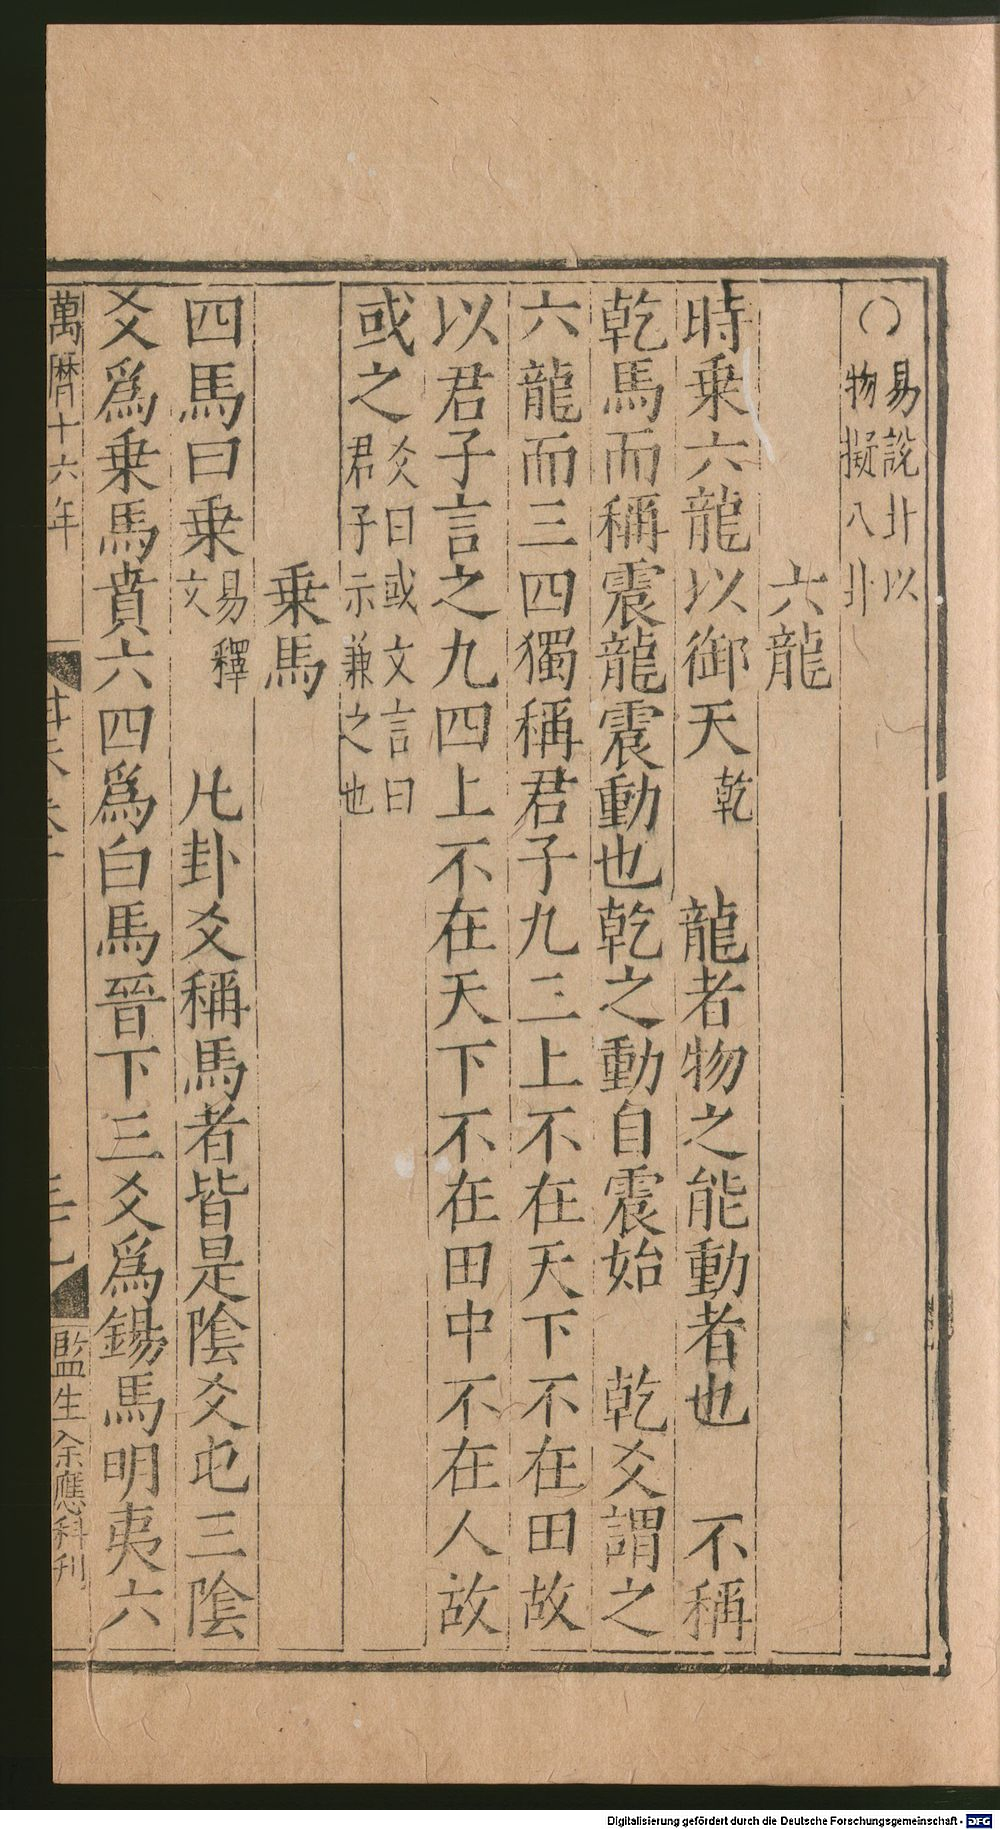 ○易說卝以物擬八卝
六龍
時乗六龍以御天乾 龍者物之能動者也 不稱
乾馬而稱震龍震動也乾之動自震始 乾爻謂之
六龍而三四獨稱君子九三上不在天下不在田故
以君子言之九四上不在天下不在田中不在人故
或之爻曰或文言曰君子示兼之也
乗馬
四馬曰乗易釋文 凡卦爻稱馬者皆是陰爻屯三陰
爻爲乗馬賁六四爲白馬晉下三爻爲錫馬明夷六
萬曆十六年
監生余應科刊
Digitalisierung gefördert durch die Deutsche Forschungsgemeinschaft - DFG